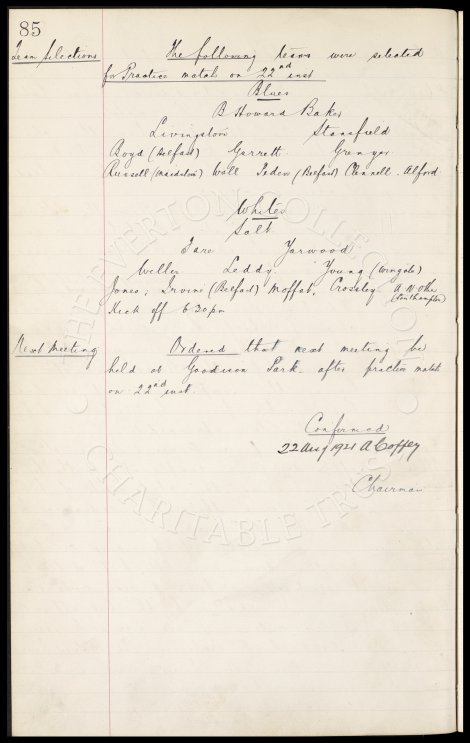 85
Team Selections
The following teams were selected
for Practice match on 22nd inst
Blues
B Howard Baker
Livingstone Stansfield
Boyd (Belfast) Garrett Grenyer
Russell (Maidstone) Wall Iceden (Belfast) Clennell. Alford
Whites
Salt
Fare Yarwood
Weller Leddy. Young (Wingate)
Jones, Irvine (Belfast) Moffat, Crossley A N Other
(Southampton)
Kick off 6 30 pm
Next Meeting
Ordered that next meeting be
held at Goodison Park after practice match
on 22nd inst.
Confirmed
22 Aug 1921 A Coffey
Chairman
THE EVERTON COLLECTION
CHARITABLE TRUST